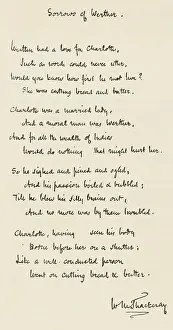 Sorrows of Werther.
Werther had a love for Charlotte,
Such as words could never utter,
Would you know how first he met her?
She was cutting bread and butter.
Charlotte was a married lady,
And a moral man was Werther,
And for all the wealth of Indies
Would do nothing that might hurt her.
So he sighed and pined and ogled,
And his passion boiled & bubbled;
Till he blew his silly brains out,
And no more was by them troubled.
Charlotte, having seen his body
Borne before her on a shutter;
Like a well conducted person
Went on cutting bread & butter.
W M Thackeray